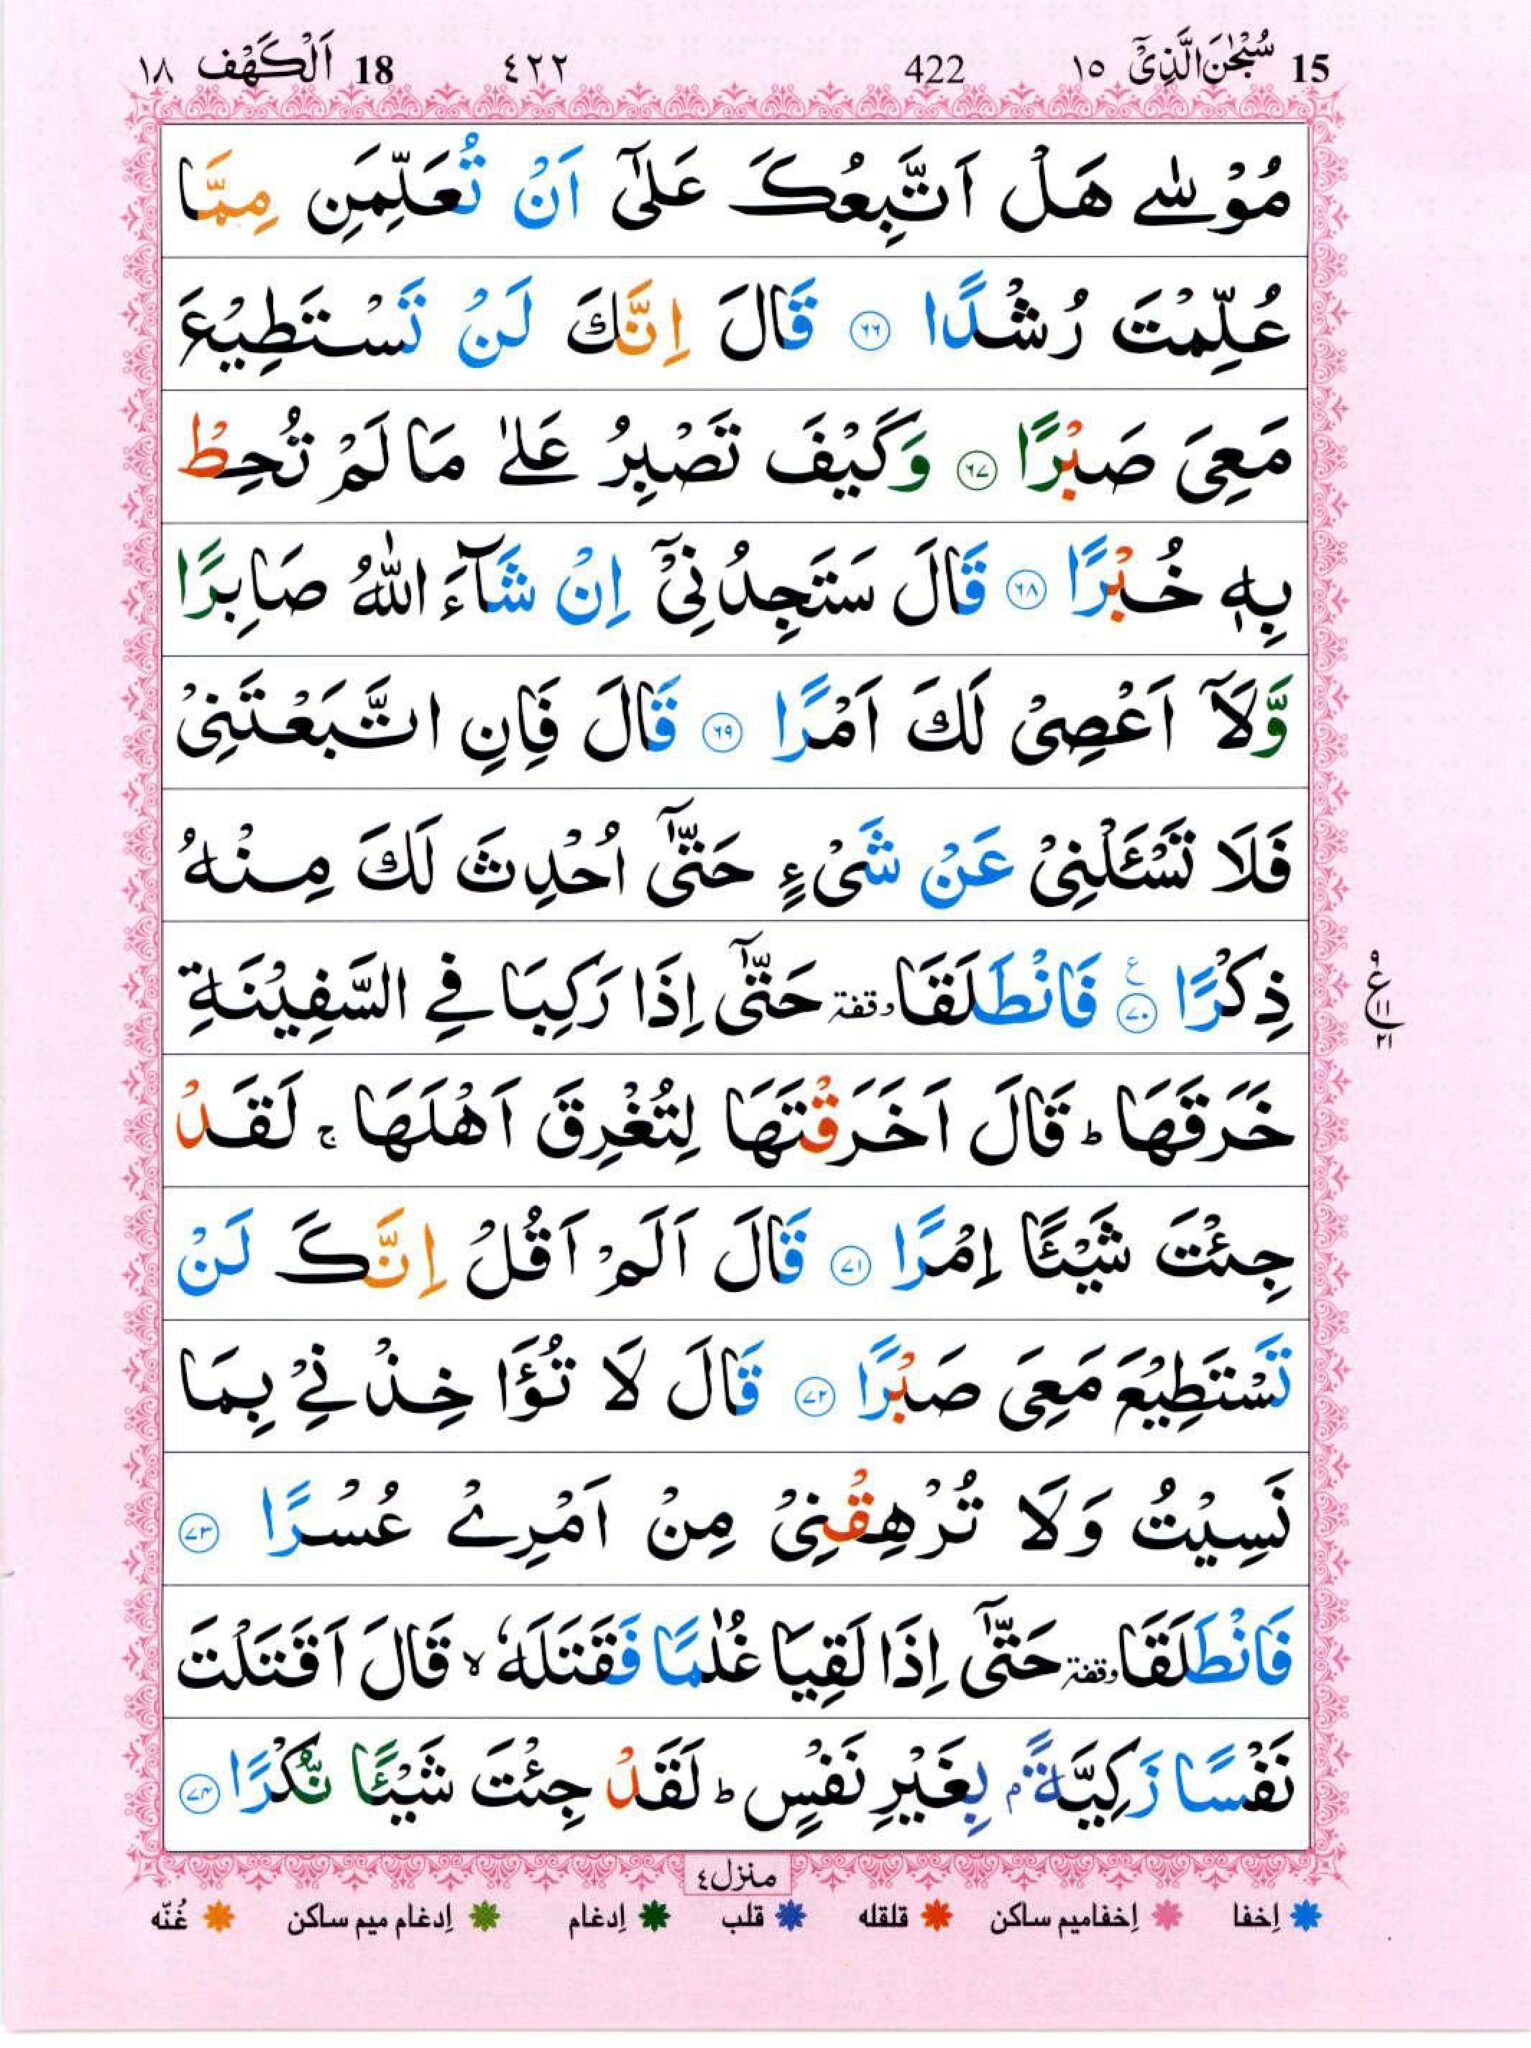 15 سُبْحٰنَ الَّذِيْۤ ١٥ 422 ٤٢٢ 18 اَلْكَهْف ١٨
مُوْسٰى هَلْ اَتَّبِعُكَ عَلٰۤى اَنْ تُعَلِّمَنِ مِمَّا
عُلِّمْتَ رُشْدًا ﴿٦٦﴾ قَالَ اِنَّكَ لَنْ تَسْتَطِيْعَ
مَعِىَ صَبْرًا ﴿٦٧﴾ وَكَيْفَ تَصْبِرُ عَلٰى مَا لَمْ تُحِطْ
بِهٖ خُبْرًا ﴿٦٨﴾ قَالَ سَتَجِدُنِىْۤ اِنْ شَآءَ اللّٰهُ صَابِرًا
وَّلَاۤ اَعْصِىْ لَكَ اَمْرًا ﴿٦٩﴾ قَالَ فَاِنِ اتَّبَعْتَنِىْ
فَلَا تَسْـَٔلْنِىْ عَنْ شَىْءٍ حَتّٰۤى اُحْدِثَ لَكَ مِنْهُ
ذِكْرًا ﴿٧٠﴾ ع فَانْطَلَقَا وقفة حَتّٰۤى اِذَا رَكِبَا فِى السَّفِيْنَةِ
ع ٩ ١١ ٢١
خَرَقَهَا ؕ قَالَ اَخَرَقْتَهَا لِتُغْرِقَ اَهْلَهَا ۚ لَقَدْ
جِئْتَ شَيْـًٔا اِمْرًا ﴿٧١﴾ قَالَ اَلَمْ اَقُلْ اِنَّكَ لَنْ
تَسْتَطِيْعَ مَعِىَ صَبْرًا ﴿٧٢﴾ قَالَ لَا تُؤَاخِذْنِىْ بِمَا
نَسِيْتُ وَلَا تُرْهِقْنِىْ مِنْ اَمْرِىْ عُسْرًا ﴿٧٣﴾
فَانْطَلَقَا وقفة حَتّٰۤى اِذَا لَقِيَا غُلٰمًا فَقَتَلَهٗ ۙ قَالَ اَقَتَلْتَ
نَفْسًا زَكِيَّةًۢ بِغَيْرِ نَفْسٍ ؕ لَقَدْ جِئْتَ شَيْـًٔا نُّكْرًا ﴿٧٤﴾
منزل ٤
اِخفا اِخفامیم ساکن قلقله قلب اِدغام اِدغام میم ساکن غُنّه